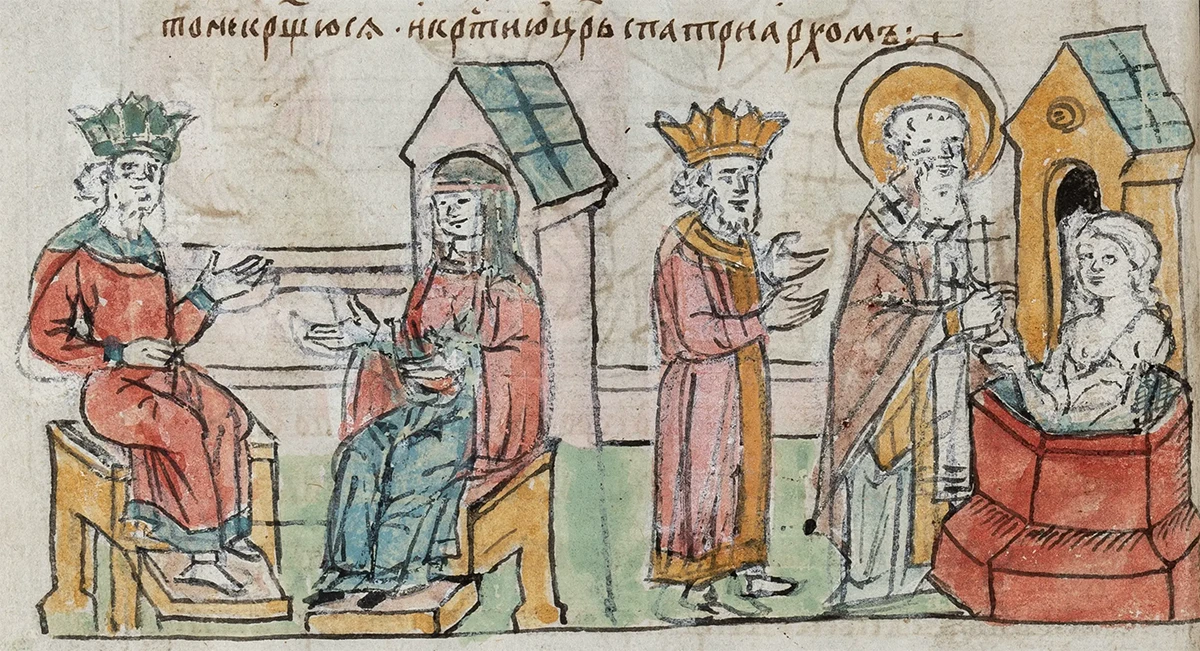 то не крщюся · и крти ю црь с патриархомъ: